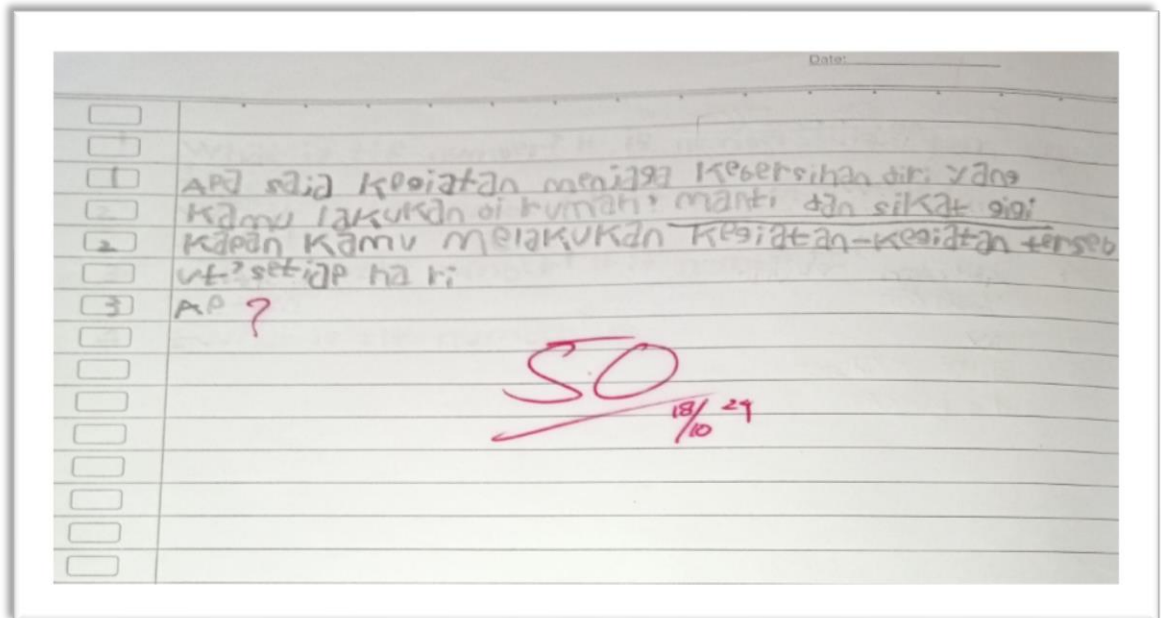 Date:
1 Apa saja kegiatan menjaga kebersihan diri yang
2 kamu lakukan di rumah? manti dan sikat gigi
2 kapan kamu melakukan kegiatan-kegiatan terseb
ut? setiap hari
3 AP ?
50
18/10 24